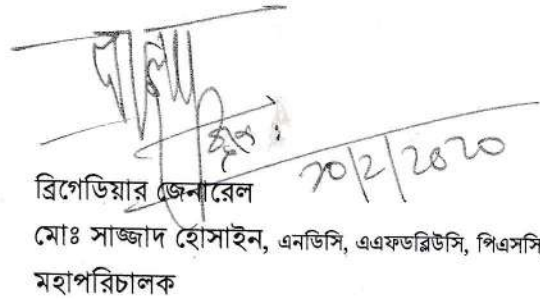 ২০/২/২০২০
ব্রিগেডিয়ার জেনারেল
মোঃ সাজ্জাদ হোসাইন, এনডিসি, এএফডব্লিউসি, পিএসসি
মহাপরিচালক